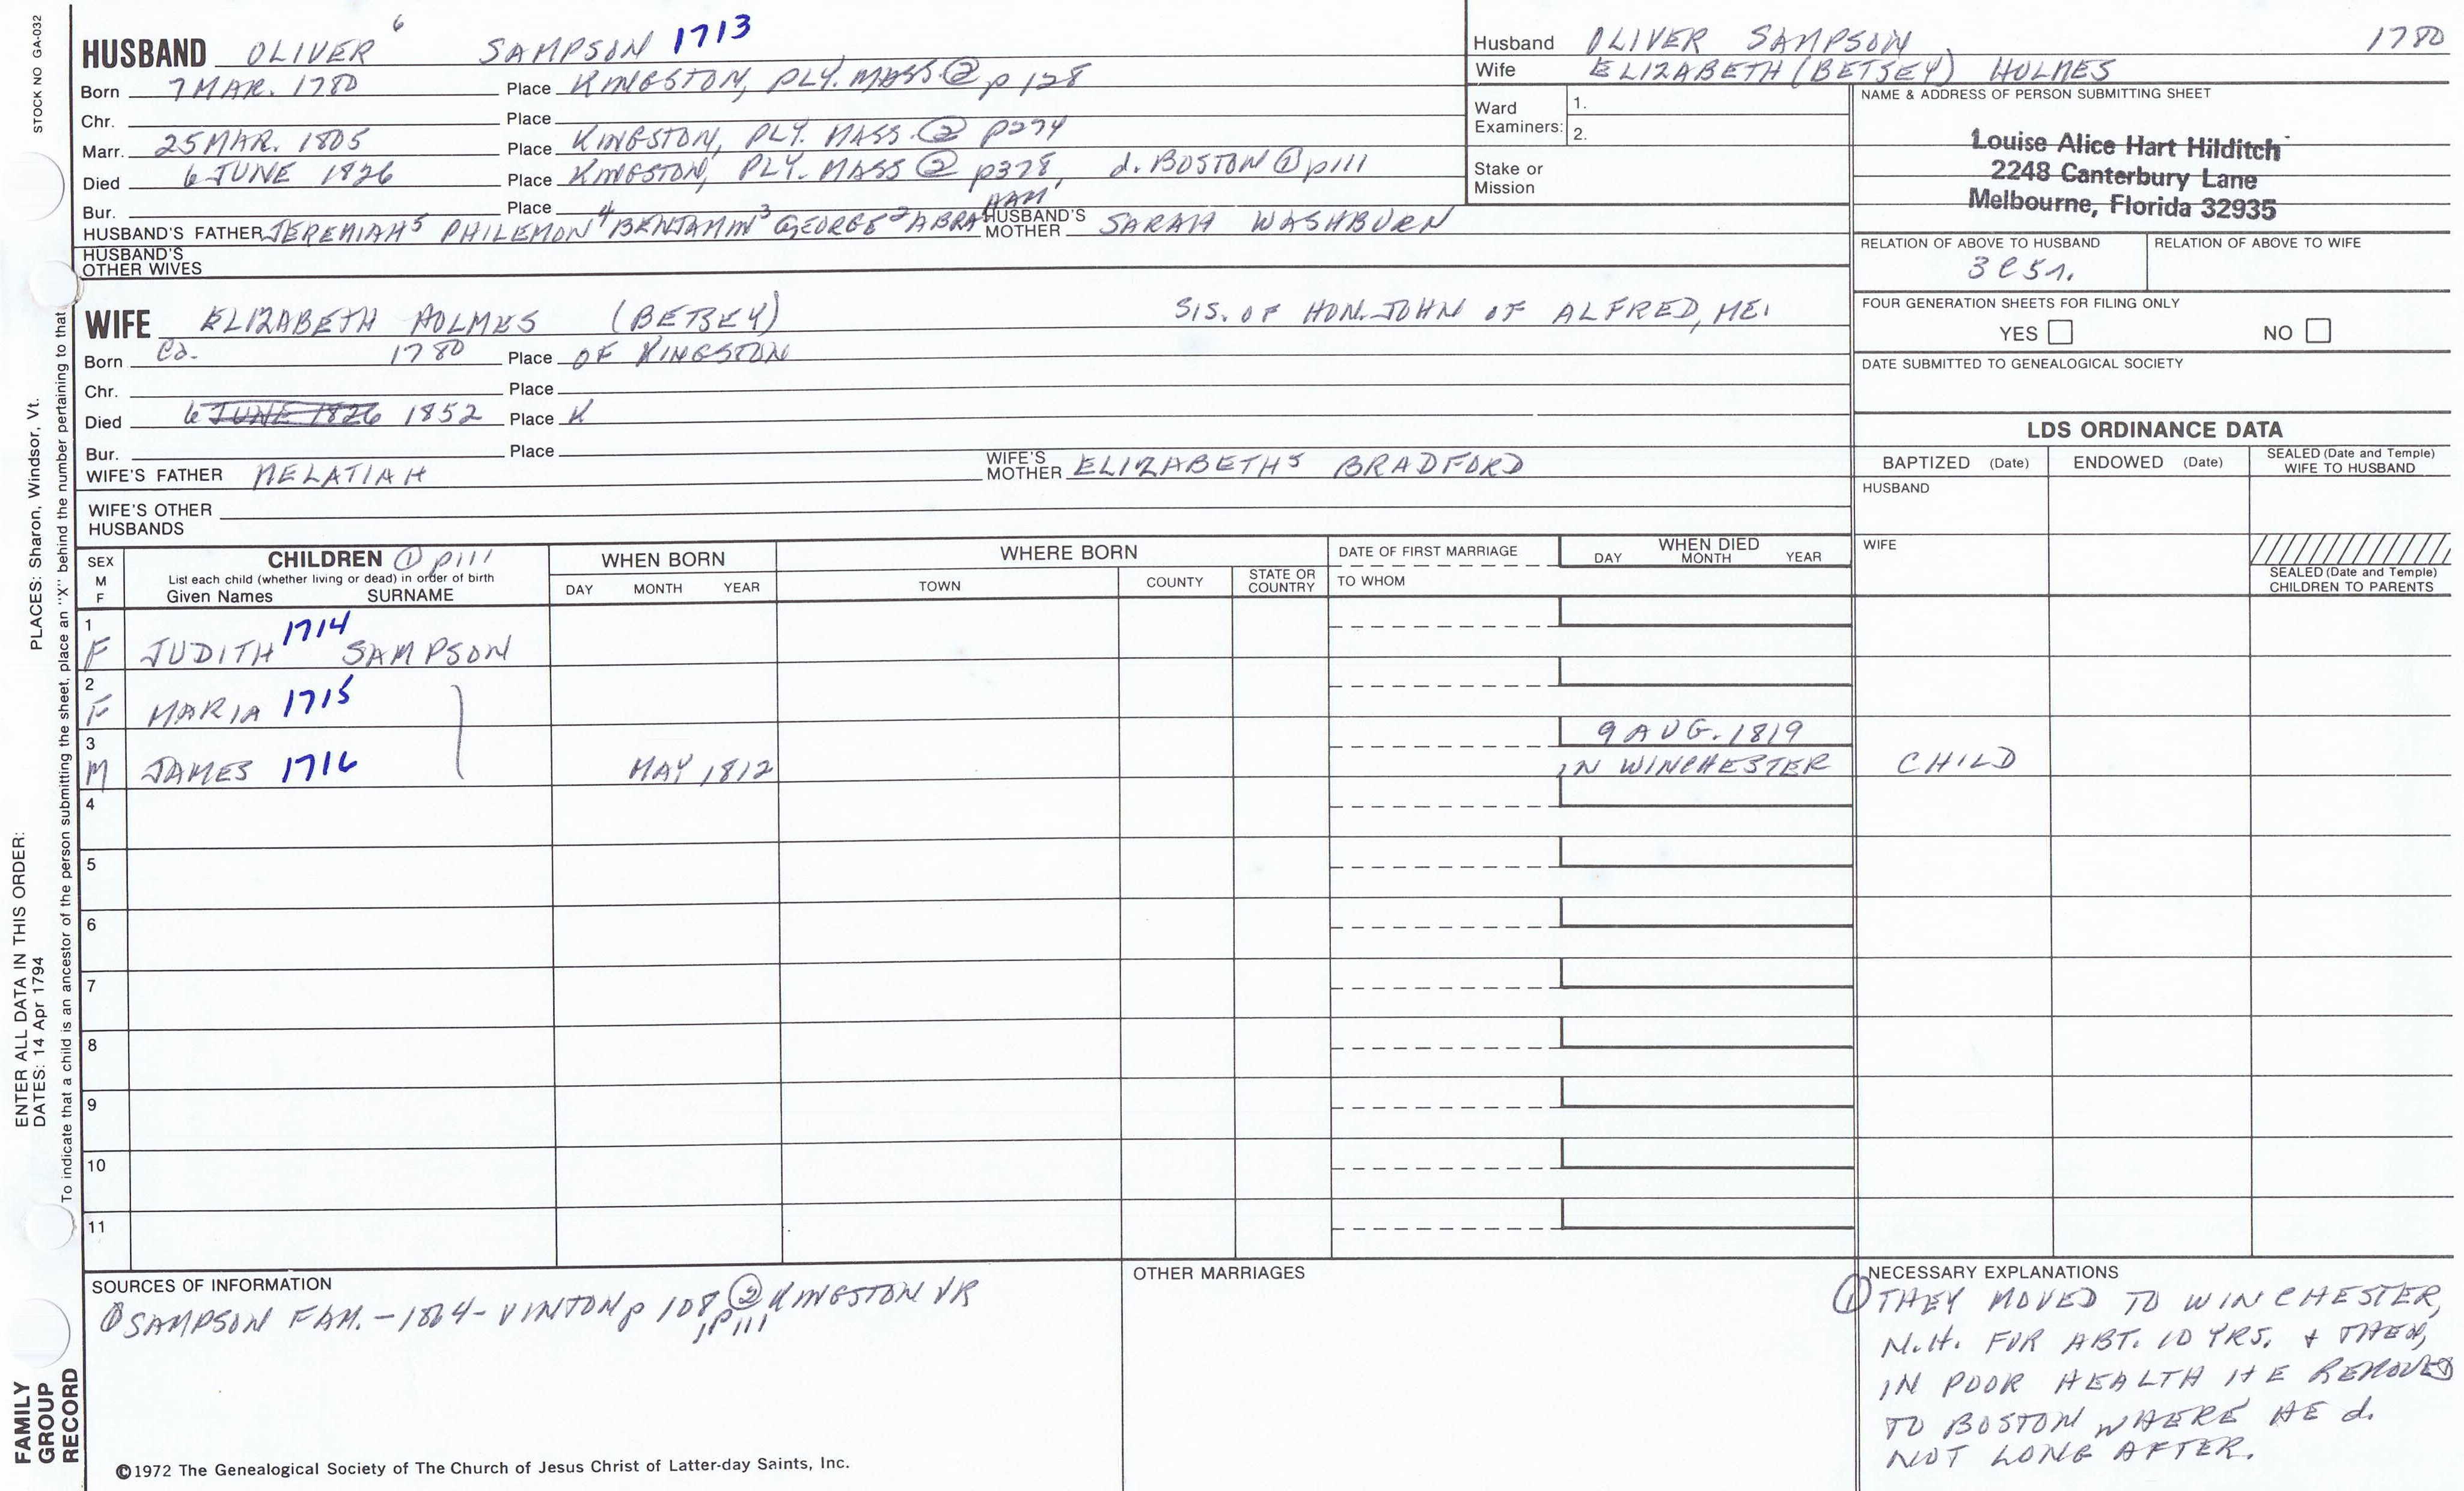 STOCK NO GA-032
HUSBAND OLIVER 6 SAMPSON 1713
Born 7 MAR. 1780 Place KINGSTON, PLY. MASS ② p 128
Chr. Place
Marr. 25 MAR. 1805 Place KINGSTON, PLY. MASS. ② P274
Died 6 JUNE 1826 Place KINGSTON, PLY. MASS ② p378, d. BOSTON ① p111
Bur. Place
HUSBAND'S FATHER JEREMIAH 5 PHILEMON 4 BENJAMIN 3 GEORGE 2 ABRAHAM 1 HUSBAND'S MOTHER SARAH WASHBURN
HUSBAND'S OTHER WIVES
WIFE ELIZABETH HOLMES (BETSEY) SIS. OF HON. JOHN OF ALFRED, ME.
Born Ca. 1780 Place OF KINGSTON
Chr. Place
Died 6 JUNE 1826 1852 Place K
Bur. Place
WIFE'S FATHER MELATIAH WIFE'S MOTHER ELIZABETH 5 BRADFORD
WIFE'S OTHER HUSBANDS
Husband OLIVER SAMPSON 1780
Wife ELIZABETH (BETSEY) HOLMES
Ward Examiners: 1.
2.
Stake or Mission
NAME & ADDRESS OF PERSON SUBMITTING SHEET
Louise Alice Hart Hilditch
2248 Canterbury Lane
Melbourne, Florida 32935
RELATION OF ABOVE TO HUSBAND RELATION OF ABOVE TO WIFE
3C5r.
FOUR GENERATION SHEETS FOR FILING ONLY
YES NO
DATE SUBMITTED TO GENEALOGICAL SOCIETY
LDS ORDINANCE DATA
BAPTIZED (Date) ENDOWED (Date) SEALED (Date and Temple) WIFE TO HUSBAND
HUSBAND
WIFE
SEALED (Date and Temple) CHILDREN TO PARENTS
SEX M F
CHILDREN ① p111
List each child (whether living or dead) in order of birth
Given Names SURNAME
WHEN BORN
DAY MONTH YEAR
WHERE BORN
TOWN COUNTY STATE OR COUNTRY
DATE OF FIRST MARRIAGE
TO WHOM
WHEN DIED
DAY MONTH YEAR
1 F JUDITH 1714 SAMPSON
2 F MARIA 1715
3 M JAMES 1716 MAY 1812 9 AUG. 1819 IN WINCHESTER CHILD
4
5
6
7
8
9
10
11
SOURCES OF INFORMATION
① SAMPSON FAM. - 1864 - VINTON p 108, p111 ② KINGSTON VR
OTHER MARRIAGES
NECESSARY EXPLANATIONS
① THEY MOVED TO WINCHESTER,
N.H. FOR ABT. 10 YRS. + THEN,
IN POOR HEALTH HE REMOVED
TO BOSTON WHERE HE d.
NOT LONG AFTER.
©1972 The Genealogical Society of The Church of Jesus Christ of Latter-day Saints, Inc.
FAMILY GROUP RECORD
ENTER ALL DATA IN THIS ORDER:
DATES: 14 Apr 1794
PLACES: Sharon, Windsor, Vt.
To indicate that a child is an ancestor of the person submitting the sheet, place an "X" behind the number pertaining to that